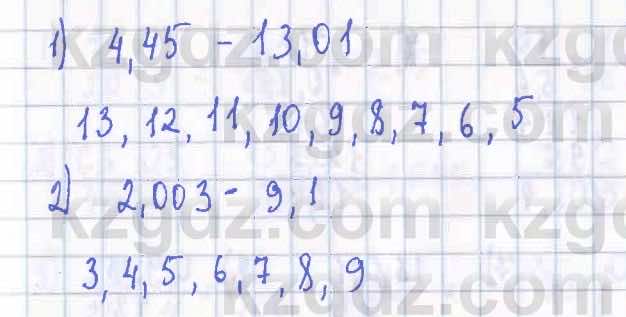 1) 4,45 - 13,01
13, 12, 11, 10, 9, 8, 7, 6, 5
2) 2,003 - 9,1
3, 4, 5, 6, 7, 8, 9
kzgdz.com